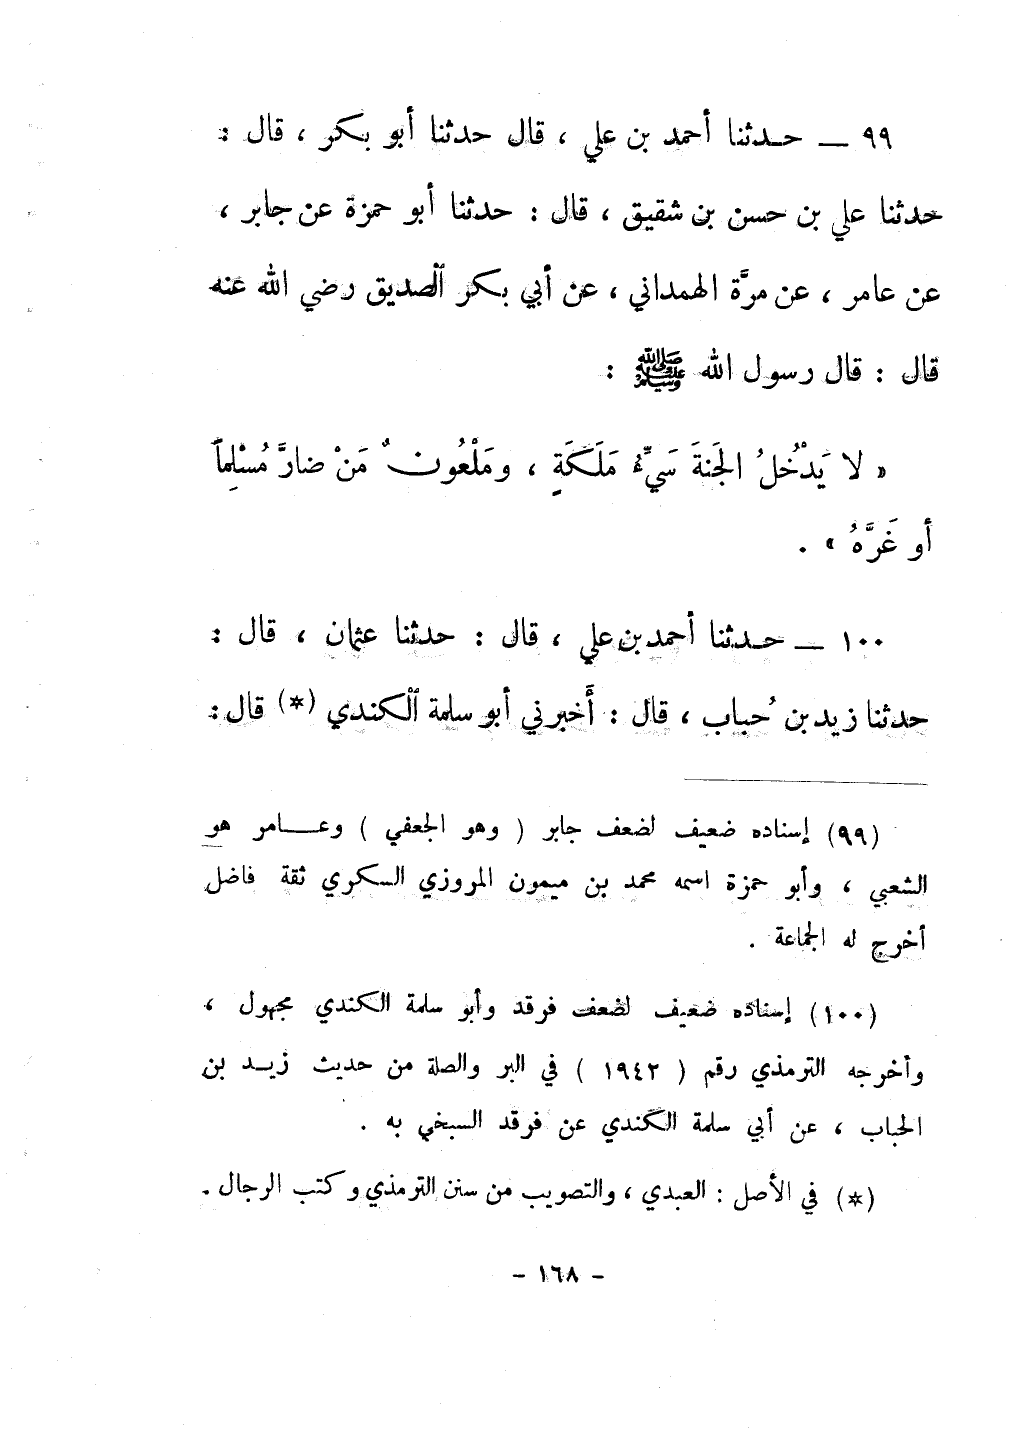 ٩٩ — حـدثنا أحمد بن علي ، قال حدثنا أبو بكر ، قال :
حدثنا علي بن حسن بن شقيق ، قال : حدثنا أبو حمزة عن جابر ،
عن عامر ، عن مرَّة الهمداني ، عن أبي بكر الصديق رضي الله عنه
قال : قال رسول الله ﷺ :
« لا يَدْخُلُ الجَنةَ سَيِّءُ مَلَكَةٍ ، ومَلْعُونٌ مَنْ ضارَّ مُسْلِماً
أو غَرَّهُ » .
١٠٠ — حـدثنا أحمد بن علي ، قال : حدثنا عثمان ، قال :
حدثنا زيد بن حُباب ، قال : أَخبرني أبو سلمة الكندي (*) قال :
(٩٩) إسناده ضعيف لضعف جابر ( وهو الجعفي ) وعـــامر هو
الشعبي ، وأبو حمزة اسمه محمد بن ميمون المروزي السكري ثقة فاضل
أخرج له الجماعة .
(١٠٠) إسناده ضعيف لضعف فرقد وأبو سلمة الكندي مجهول ،
وأخرجه الترمذي رقم ( ١٩٤٢ ) في البر والصلة من حديث زيـد بن
الحباب ، عن أبي سلمة الكندي عن فرقد السبخي به .
(*) في الأصل : العبدي ، والتصويب من سنن الترمذي وكتب الرجال .
- ١٦٨ -